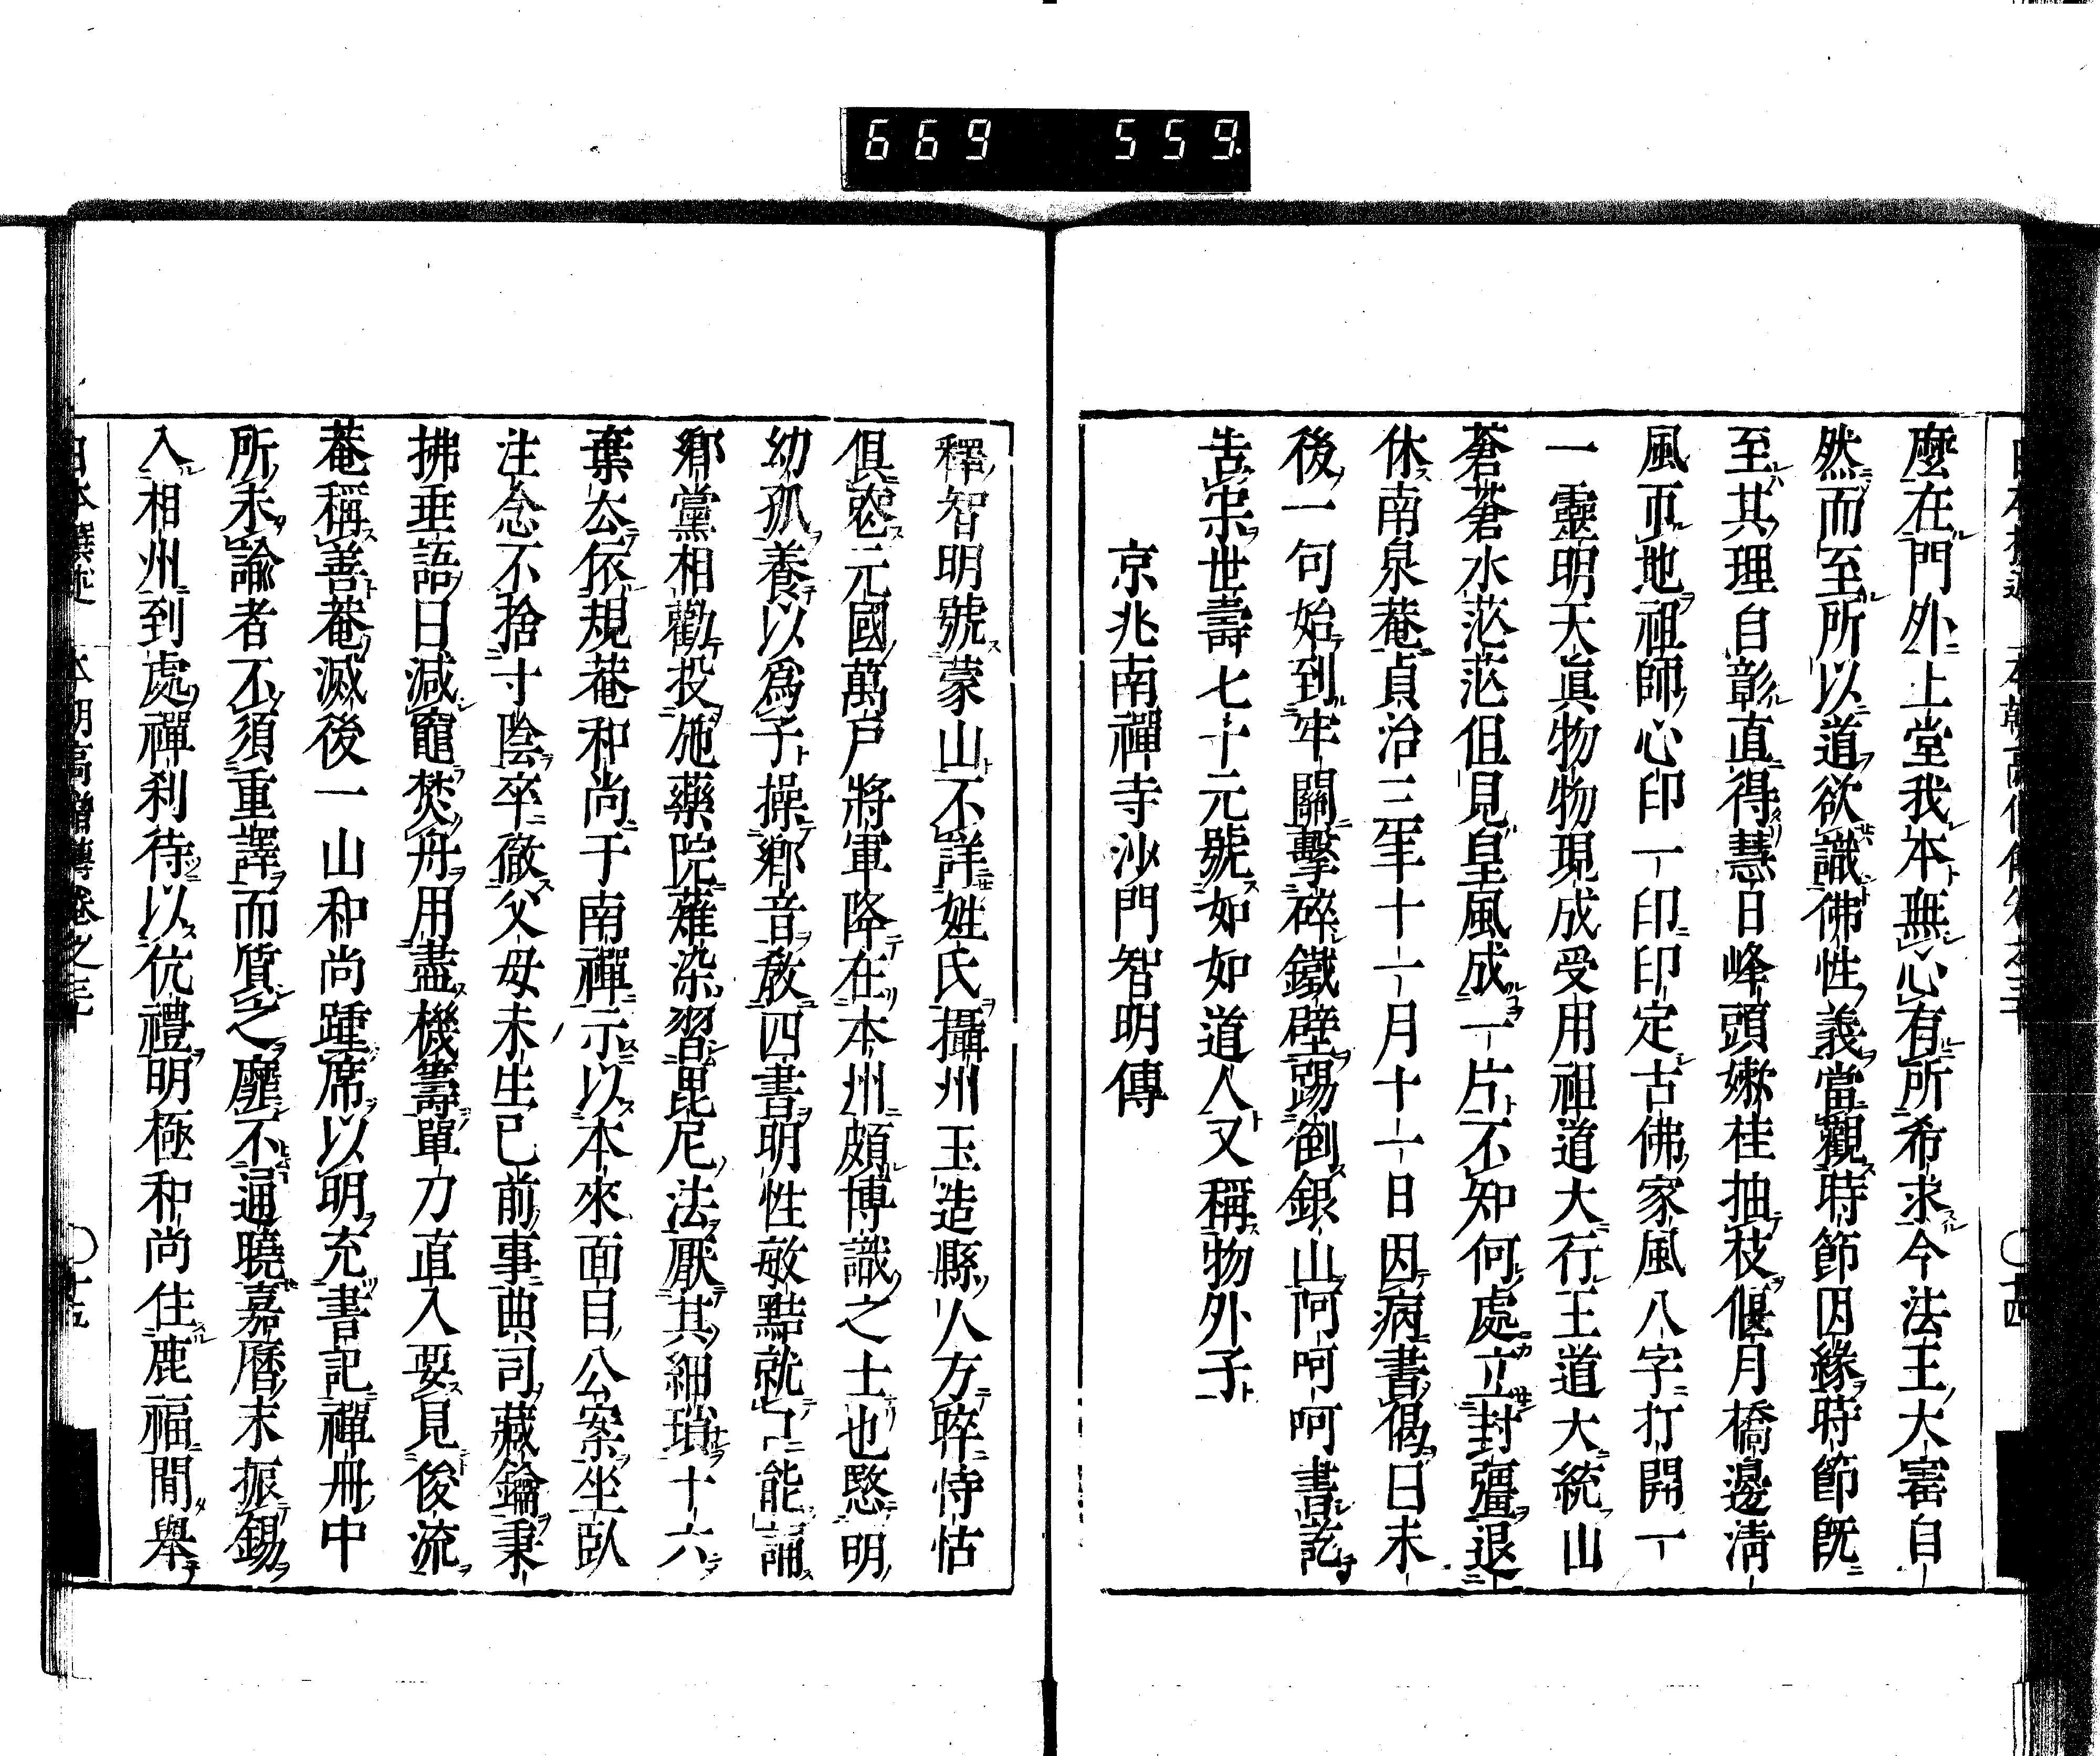 669 559.
麼在門外上堂我本無心有所希求今法王大寶自
然而至所以道欲識佛性義當觀時節因緣時節既
至其理自彰直得慧日峰頭嫩桂抽枝偃月橋邊淸
風匝地祖師心印一印印定古佛家風八字打開一
一靈明天眞物物現成受用祖道大行王道大統山
蒼蒼水茫茫但見皇風成一片不知何處立封疆退
休南泉菴貞治三年十一月十一日因病書偈曰末
後一句始到牢關擊碎鐵壁踢倒銀山呵呵呵書訖
告寂世壽七十元號如如道人又稱物外子
京兆南禪寺沙門智明傳
釋智明號蒙山不詳姓氏攝州玉造縣人方晬恃怙
俱喪元國萬戶將軍降在本州頗博識之士也愍明
幼孤養以爲子操鄉音敎四書明性敏黠就口能誦
鄉黨相勸投施藥院薙染習毘尼法厭其細瑣十六
棄去依規菴和尚于南禪示以本來面目公案坐臥
注念不捨寸陰卒徹父母未生已前事曲司藏鑰秉
拂垂語曰減竈焚舟用盡機籌單刀直入要見俊流
菴稱善菴滅後一山和尚踵席以明充書記禪冊中
所未諭者不須重譯而質之靡不通曉嘉曆末振錫
入相州到處禪刹待以伉禮明極和尚住鹿福間舉
日本撰述 本朝高僧傳卷之三十 〇十五